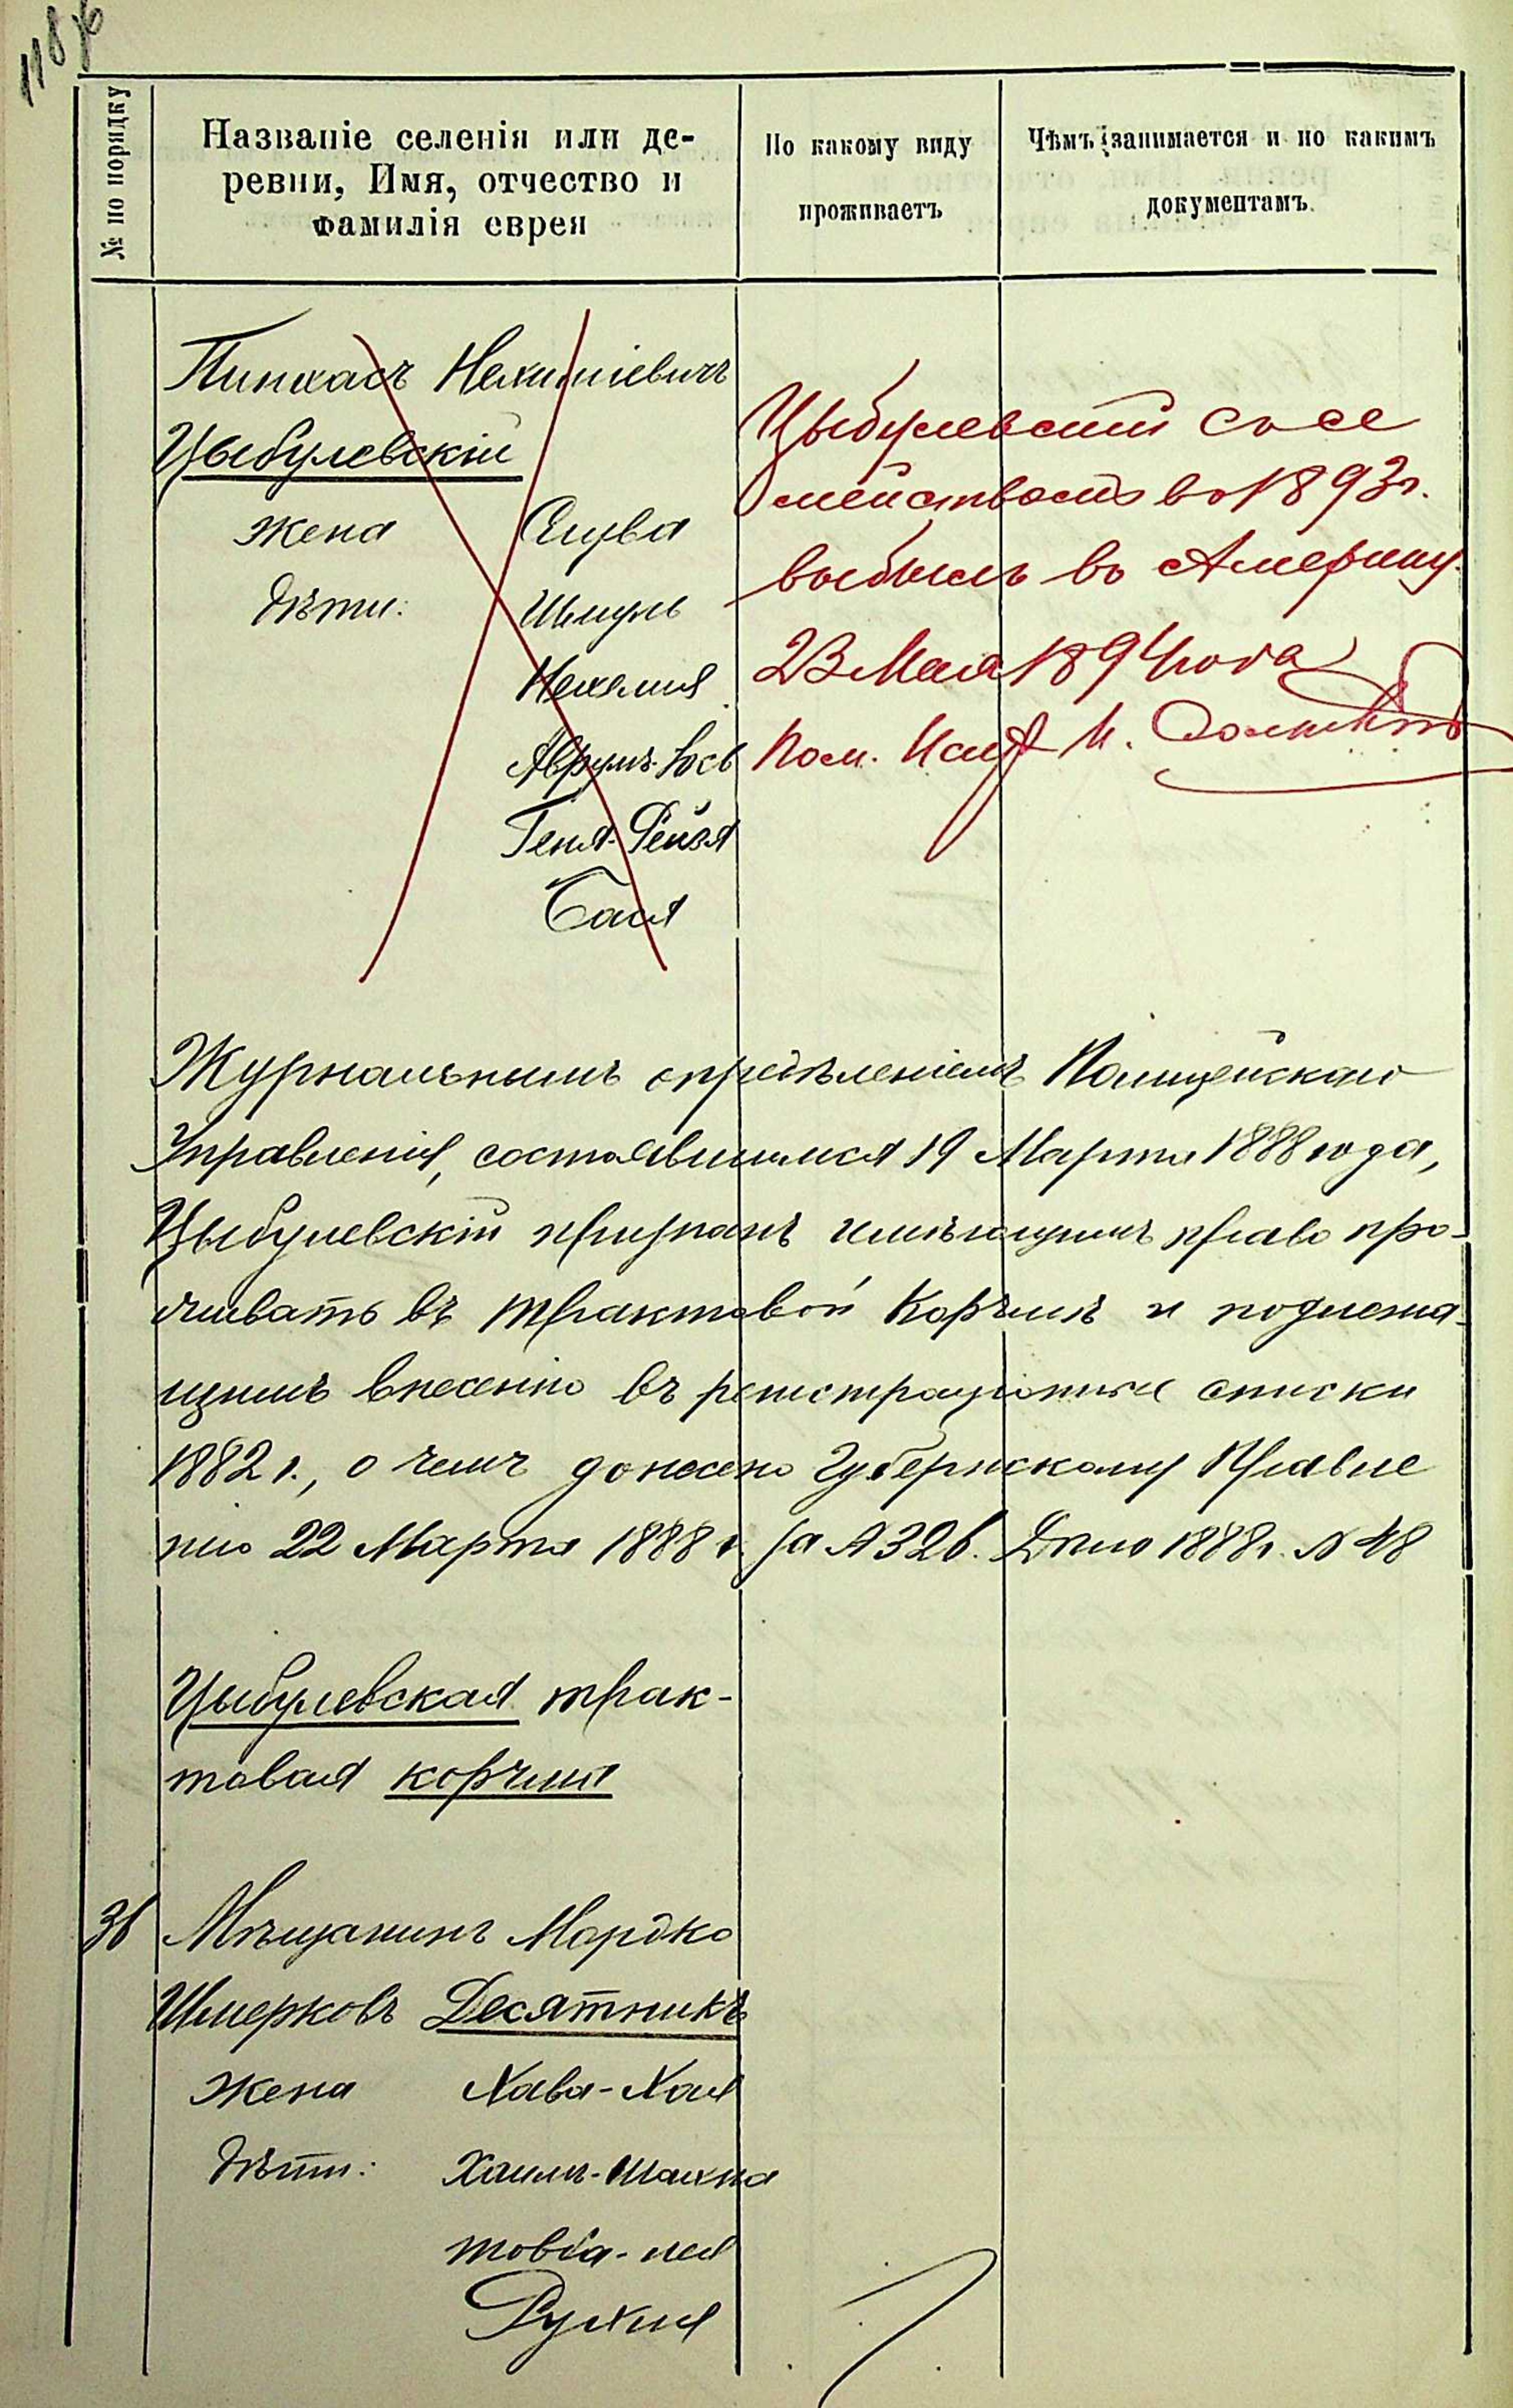 118
№ по порядку
Названіе селенія или де-
ревни, Имя, отчество и
фамилія еврея
По какому виду
проживаетъ
Чѣмъ занимается и по какимъ
документамъ.
Пинхасъ Нехиміевичъ
Цыбулевскій
Жена
Дѣти:
Шмуль
Нехемия
Аврумъ-Іось
Геня-Рейзя
Бася
Цыбулевскій съ се
мействомъ въ 1893 г.
выбылъ въ Америку.
23 Мая 1894 года
Пом. Испр И.
Журнальнымъ опредѣленіемъ Полицейскаго
Управленія, состоявшимся 19 Марта 1888 года,
Цыбулевскій признанъ имѣющимъ право про-
живать въ трактовой Корчмѣ и подлежа-
щимъ внесенію въ регистраціонные списки
1882 г., о чемъ донесено Губернскому Правле
нію 22 Марта 1888 г. за № 326. Дѣло 1888 г. № 48
Цыбулевская трак-
товая корчма
36 Мѣщанинъ Мордко
Шмерковъ Десятникъ
Жена Хава-Хая
Дѣти: Хаимъ-Шахна
Това-лея
Рухля